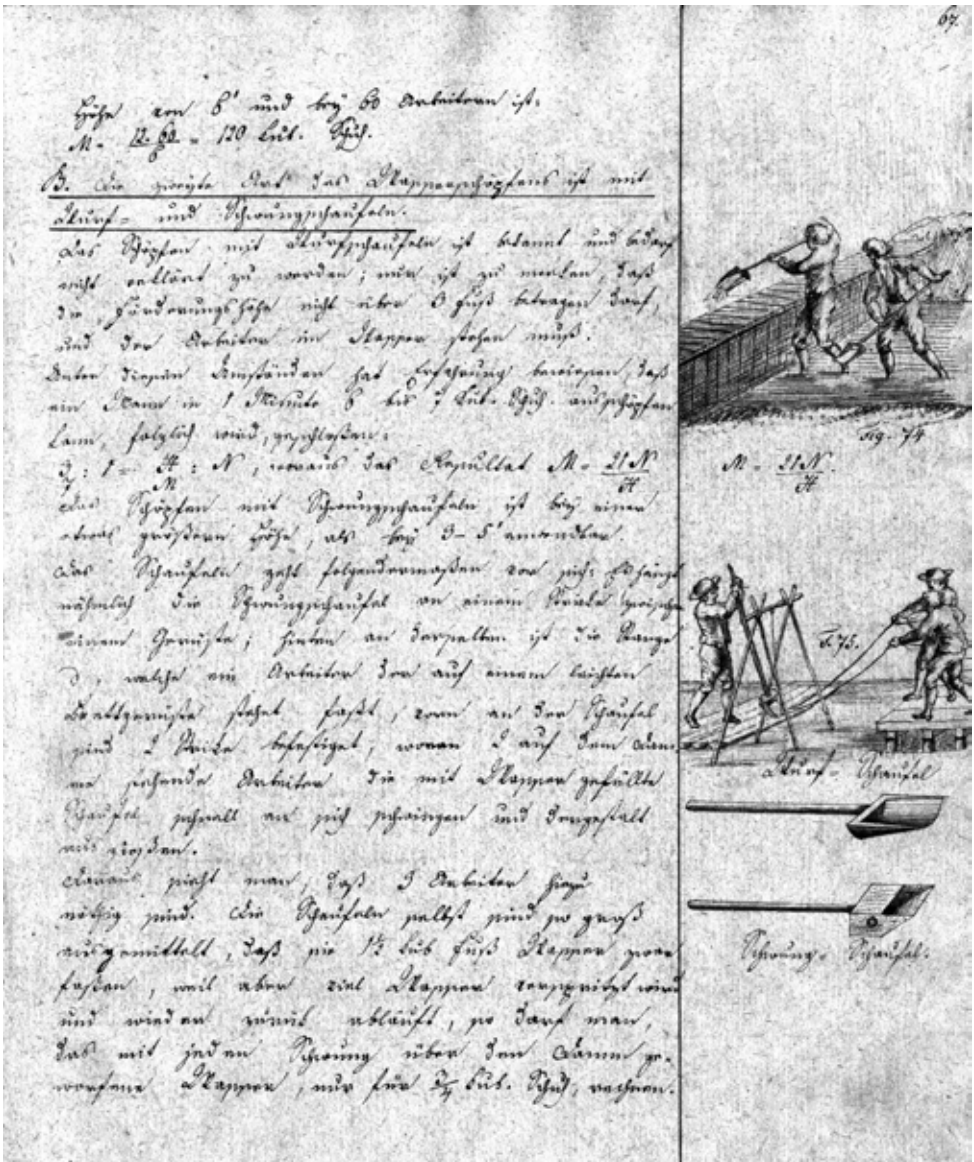 67.
Höhe von 6' und bey 60 Arbeitern ist:
M = 12. 60 / 6 = 120 Cub. Schuh.
B. Die zweyte Art das Wasserschöpfens ist mit
Wurf- und Schwungschaufeln.
Das Schöpfen mit Wurfschaufeln ist bekannt und bedarf
nicht erklärt zu werden; nur ist zu merken, daß
die Förderungshöhe nicht über 3 Fuß betragen darf,
und der Arbeiter im Wasser stehen muß.
Unter diesen Umständen hat Erfahrung bewiesen, daß
ein Mann in 1 Minute 6 bis 7 Cub. Schuh ausschöpfen
kann, folglich wird geschloßen:
: N, woraus das Resultat M = 21 N / H
Das Schöpfen mit Schwungschaufeln ist bey einer
etwas größern Höhe, als bey 3 – 5' anwendbar.
Das Schaufeln geht folgendermaßen vor sich: Es hängt
nähmlich die Schwungschaufel an einem Stricke zwischen
einem Gerüste; hinten an derselben ist die Stange
welche ein Arbeiter der auf einem leichten
Brettgerüste stehet faßt, vorn an der Schaufel
sind 2 Stricke befestiget, woran 2 auf dem Dam-
me stehende Arbeiter die mit Wasser gefüllte
Schaufel schnell an sich schwingen und dergestalt
ausgießen.
Daraus sieht man, daß 3 Arbeiter hiezu
nöthig sind. Die Schaufeln selbst sind so groß
ausgemittelt, daß sie 1½ Cub Fuß Wasser zwar
faßen, weil aber viel Wasser verspritzt wird
und wieder zurück abläuft, so darf man,
das mit jeden Schwung über den Damm ge-
worfene Wasser, nur für ¾ Cub. Schuh, rechnen.
Fig. 74
M = 21 N / H
F. 75.
Wurf = Schaufel
Schwung = Schaufel.